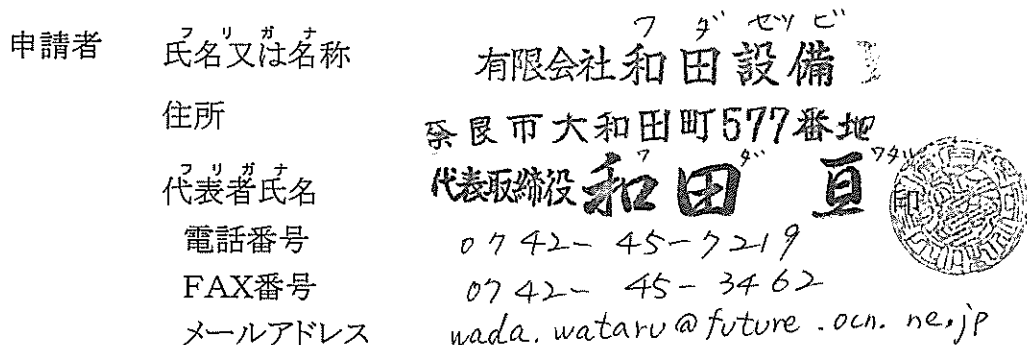 フ ダ セツビ
申請者 氏名又は名称 フリガナ 有限会社和田設備
住所 奈良市大和田町577番地
フリガナ ワ ダ ワタル
代表者氏名 代表取締役 和田 亘 印
電話番号 0742-45-7219
FAX番号 0742-45-3462
メールアドレス wada.wataru@future.ocn.ne.jp